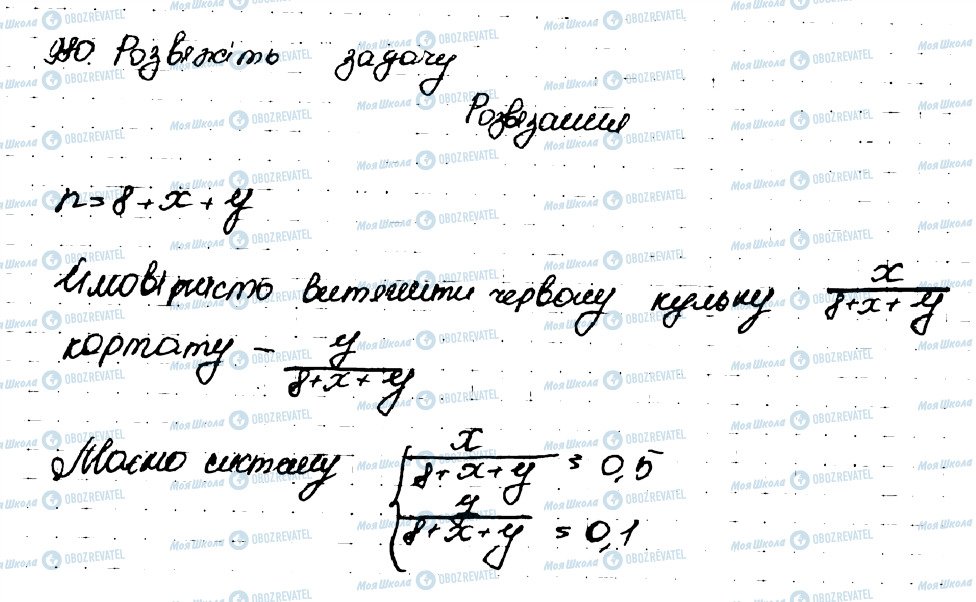 Розвяжіть задачу
Розвязання
n = 8 + x + y
Ймовірність витягнути червону кульку x/(8+x+y)
картату – y/(8+x+y)
Маємо систему { x/(8+x+y) = 0,5
y/(8+x+y) = 0,1
Моя Школа OBOZREVATEL